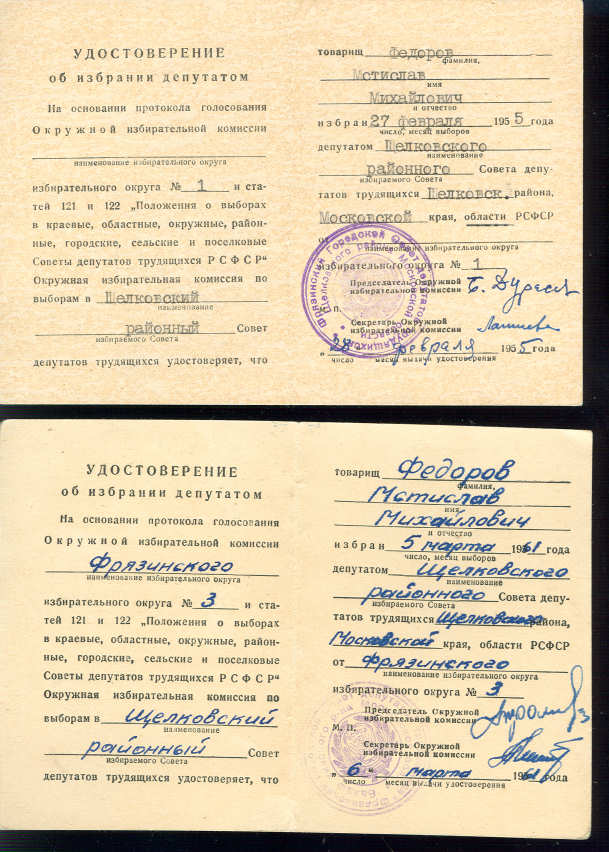 УДОСТОВЕРЕНИЕ
об избрании депутатом
На основании протокола голосования
Окружной избирательной комиссии
наименование избирательного округа
избирательного округа № 1 и ста-
тей 121 и 122 „Положения о выборах
в краевые, областные, окружные, район-
ные, городские, сельские и поселковые
Советы депутатов трудящихся РСФСР"
Окружная избирательная комиссия по
выборам в Щелковский
наименование
районный Совет
избираемого Совета
депутатов трудящихся удостоверяет, что
товарищ Федоров
фамилия,
Мстислав
имя
Михайлович
и отчество
избран 27 февраля 1955 года
число, месяц выборов
депутатом Щелковского
наименование
районного Совета депу-
избираемого Совета
татов трудящихся Щелковск. района,
Московской края, области РСФСР
от
наименование избирательного округа
избирательного округа № 1
Председатель Окружной
избирательной комиссии
М.П.
Секретарь Окружной
избирательной комиссии
„28" февраля 1955 года
число месяц выдачи удостоверения
УДОСТОВЕРЕНИЕ
об избрании депутатом
На основании протокола голосования
Окружной избирательной комиссии
Фрязинского
наименование избирательного округа
избирательного округа № 3 и ста-
тей 121 и 122 „Положения о выборах
в краевые, областные, окружные, район-
ные, городские, сельские и поселковые
Советы депутатов трудящихся РСФСР"
Окружная избирательная комиссия по
выборам в Щелковский
наименование
районный Совет
избираемого Совета
депутатов трудящихся удостоверяет, что
товарищ Федоров
фамилия,
Мстислав
имя
Михайлович
и отчество
избран 5 марта 1961 года
число, месяц выборов
депутатом Щелковского
наименование
районного Совета депу-
избираемого Совета
татов трудящихся Щелковского района,
Московской края, области РСФСР
от Фрязинского
наименование избирательного округа
избирательного округа № 3
Председатель Окружной
избирательной комиссии
М. П.
Секретарь Окружной
избирательной комиссии
„6" марта 1961 года
число месяц выдачи удостоверения